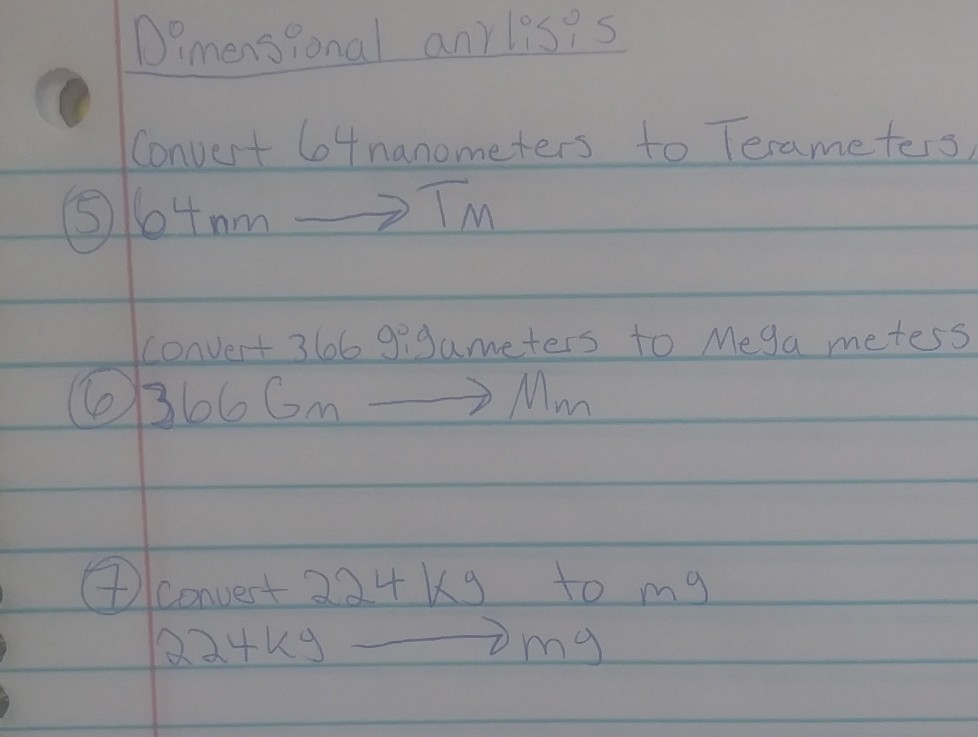 Dimensional anylisis
Convert 64 nanometers to Terameters.
⑤ 64nm → Tm
convert 366 gigameters to Mega meters
⑥ 366 Gm → Mm
⑦ convert 224 kg to mg
224kg → mg